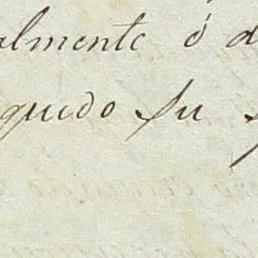 almente ó d
quedo su